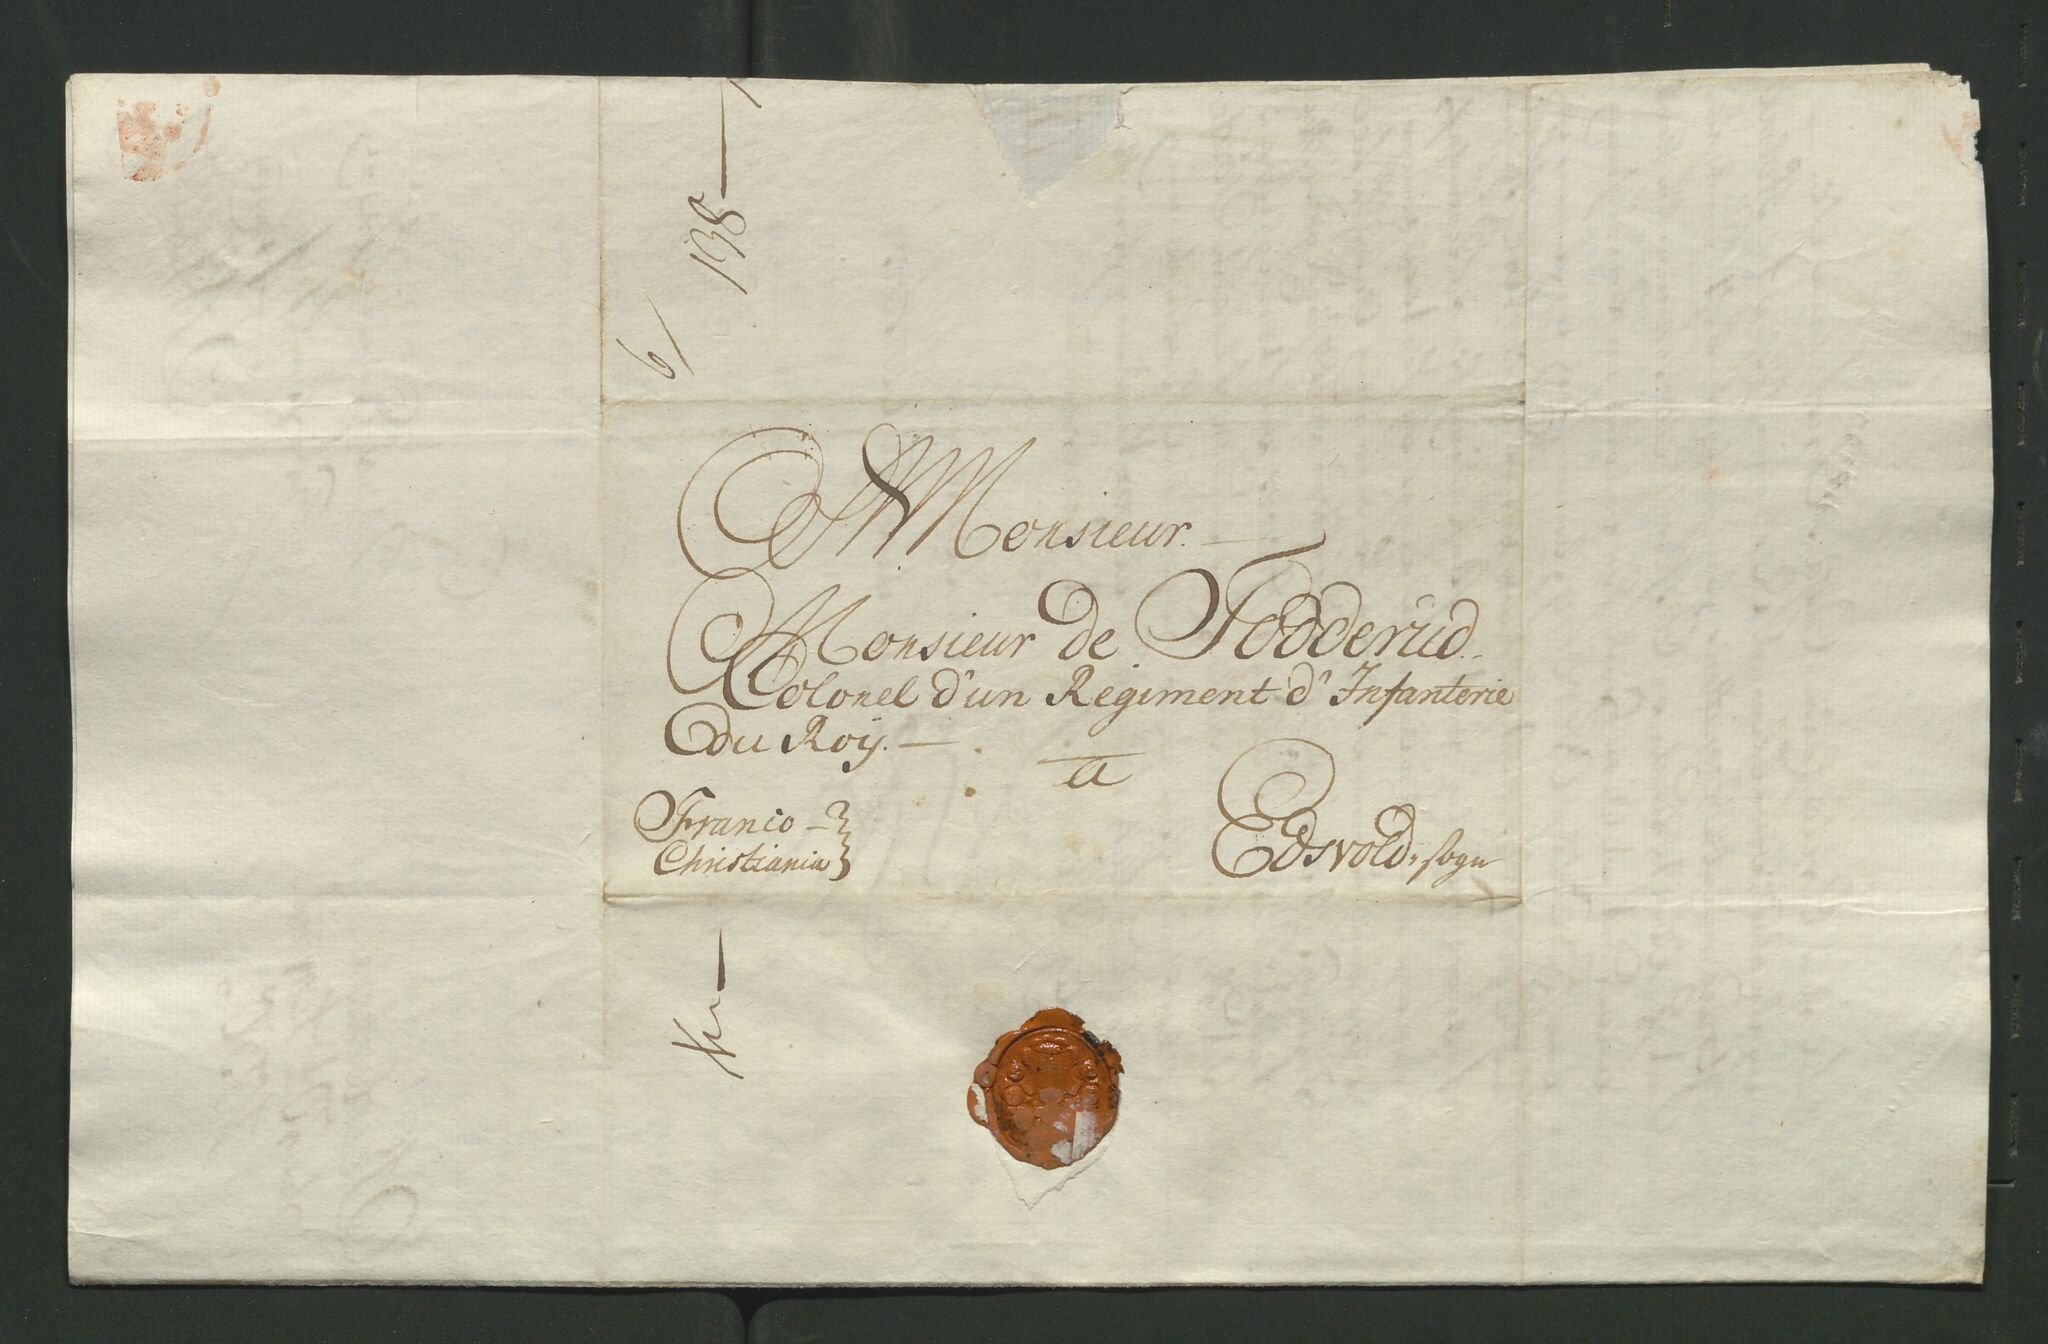 138
6/
A Monsieur.
Monsieur de Todderud.
Colonel d'un Regiment d'Infanterie
du Roÿ.
a
Franco
Christiania
Edsvold, sogn